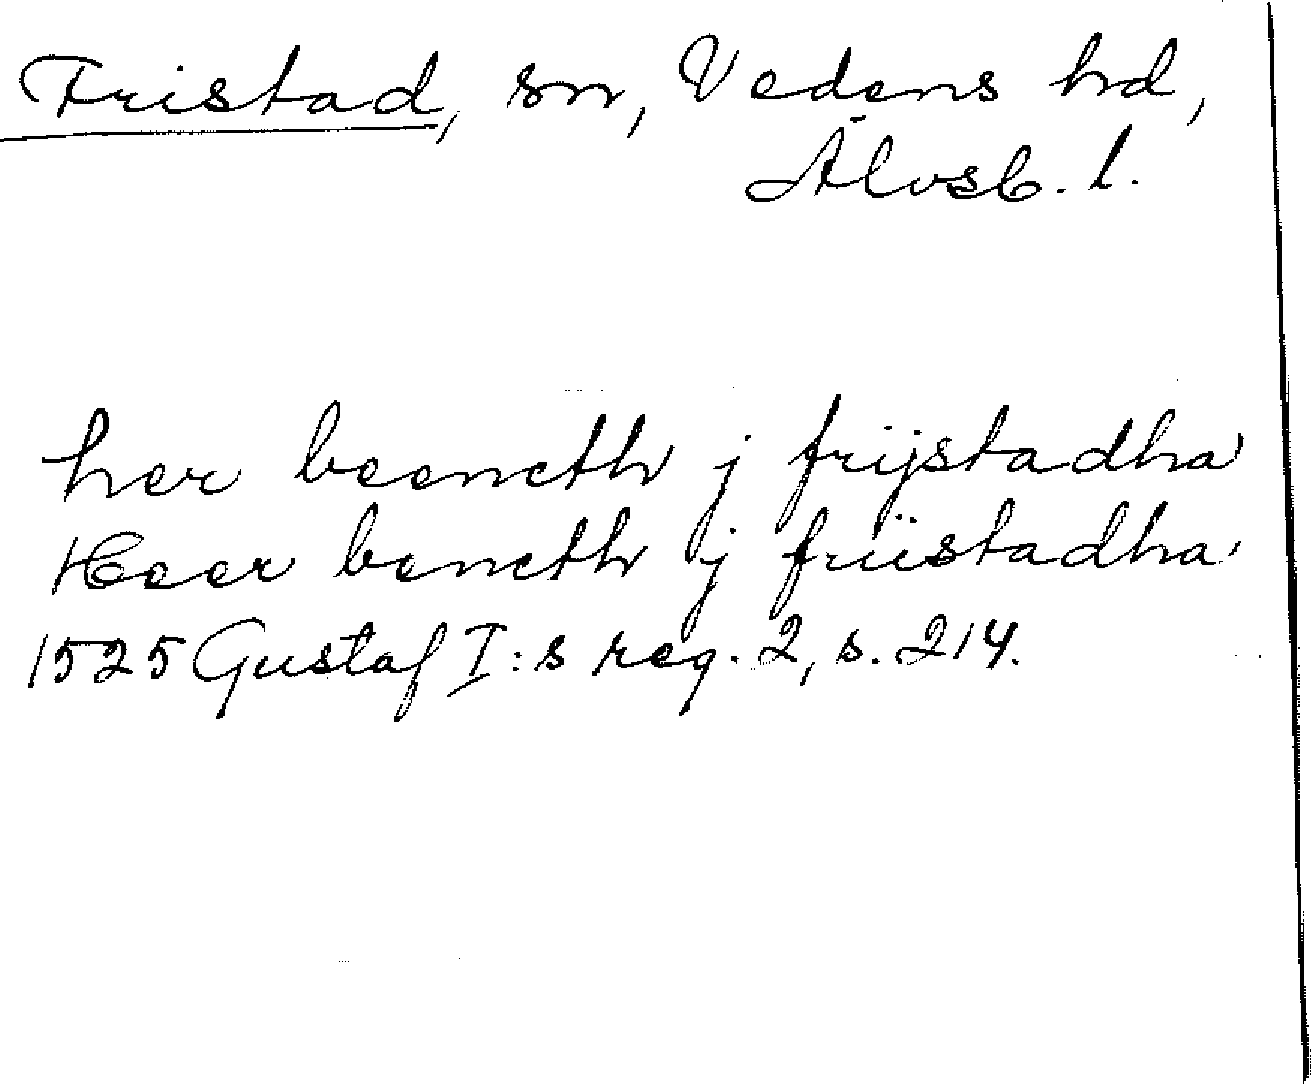 Fristad, sn, Vedens hd,
Älvsb. l.
her beencth j frijstadha
Heer bencth ij friistadha
1525 Gustaf I:s reg. 2, s. 214.